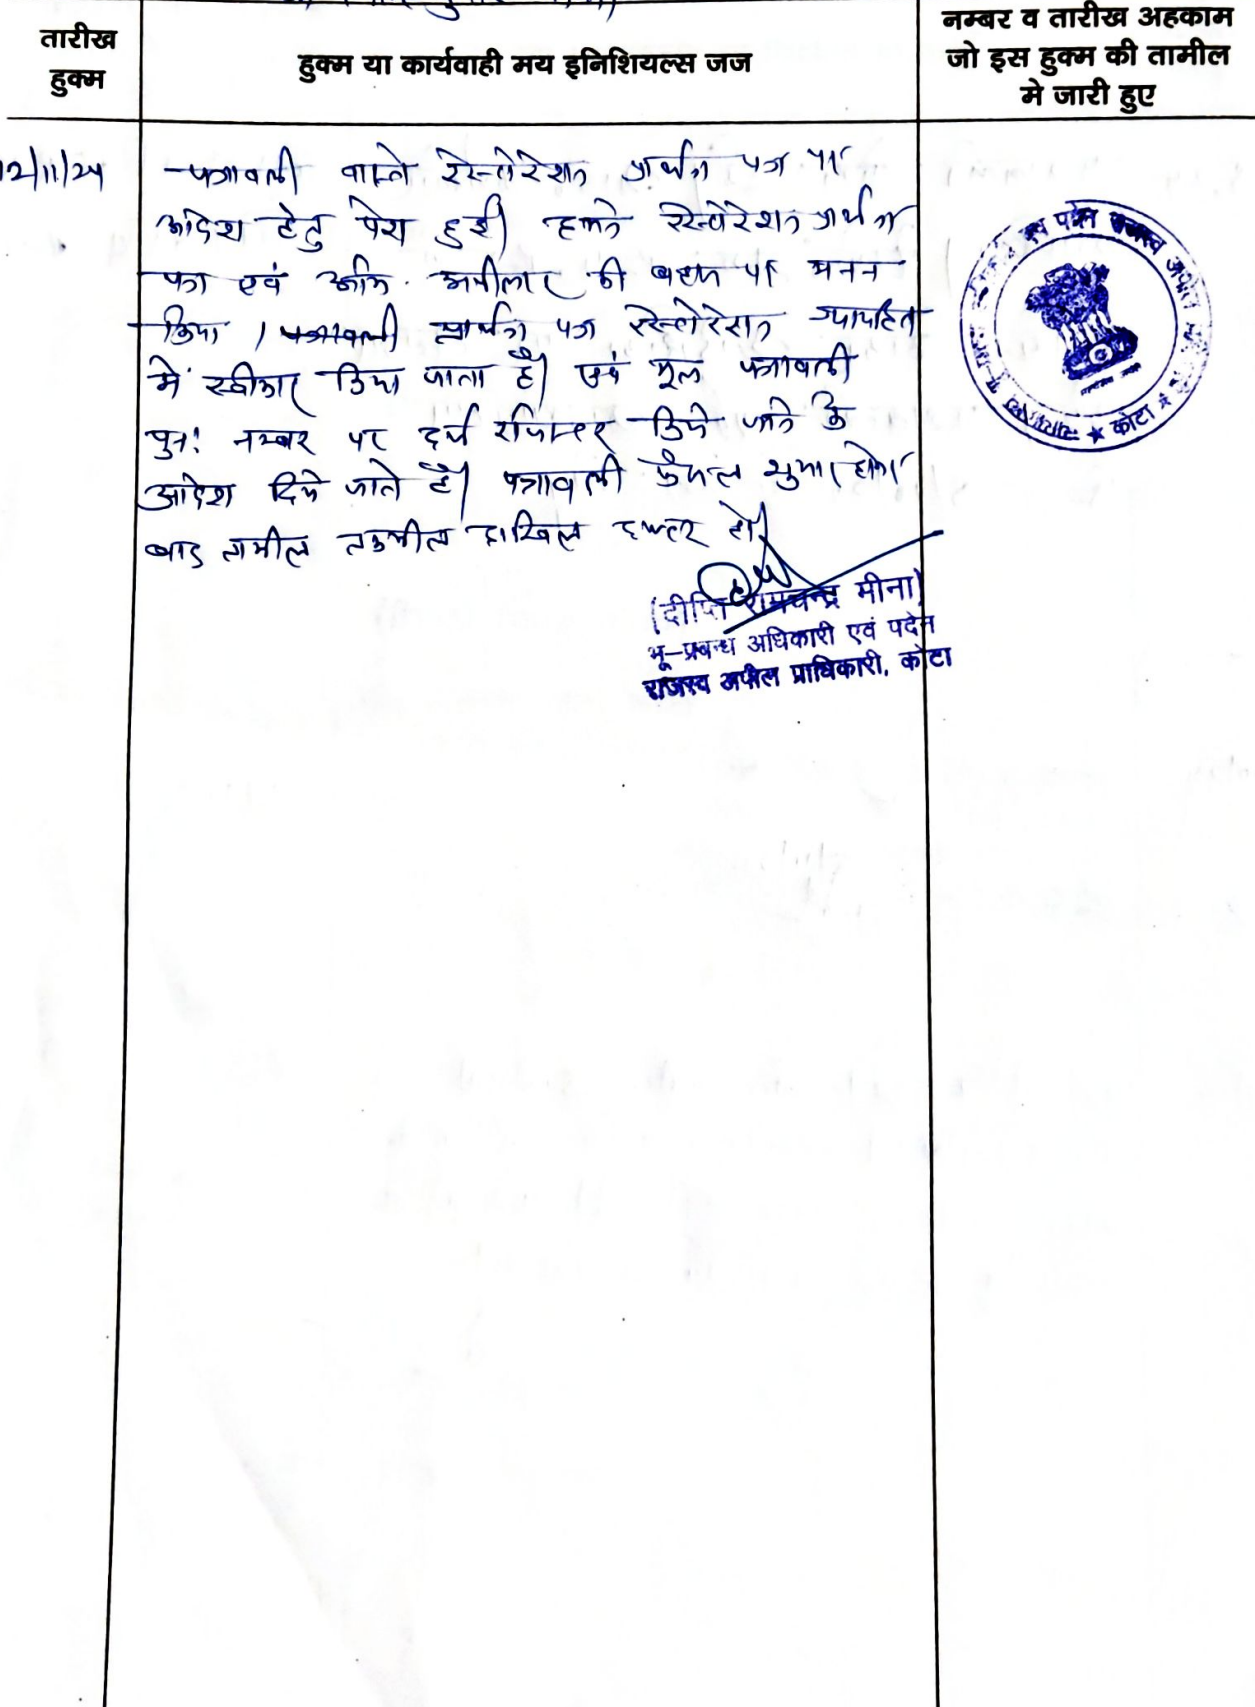 तारीख
हुक्म
हुक्म या कार्यवाही मय इनिशियल्स जज
नम्बर व तारीख अहकाम
जो इस हुक्म की तामील
मे जारी हुए
12/11/24
पत्रावली वास्ते रेस्टोरेशन प्रार्थना पत्र पर
आदेश हेतु पेश हुई। हमने रेस्टोरेशन प्रार्थना
पत्र एवं अभि. अपीलार की बहस पर मनन
किया। पत्रावली प्रार्थना पत्र रेस्टोरेशन न्यायहित
में स्वीकार किया जाता है। एवं मूल पत्रावली
पुनः नम्बर पर दर्ज रजिस्टर किये जाने के
आदेश दिये जाते है। पत्रावली फैसल शुमार होकर
बाद तामील तकमील दाखिल दफ्तर हो।
(दीप्ति रामचन्द्र मीना)
भू-प्रबन्ध अधिकारी एवं पदेन
राजस्व अपील प्राधिकारी, कोटा
कोटा